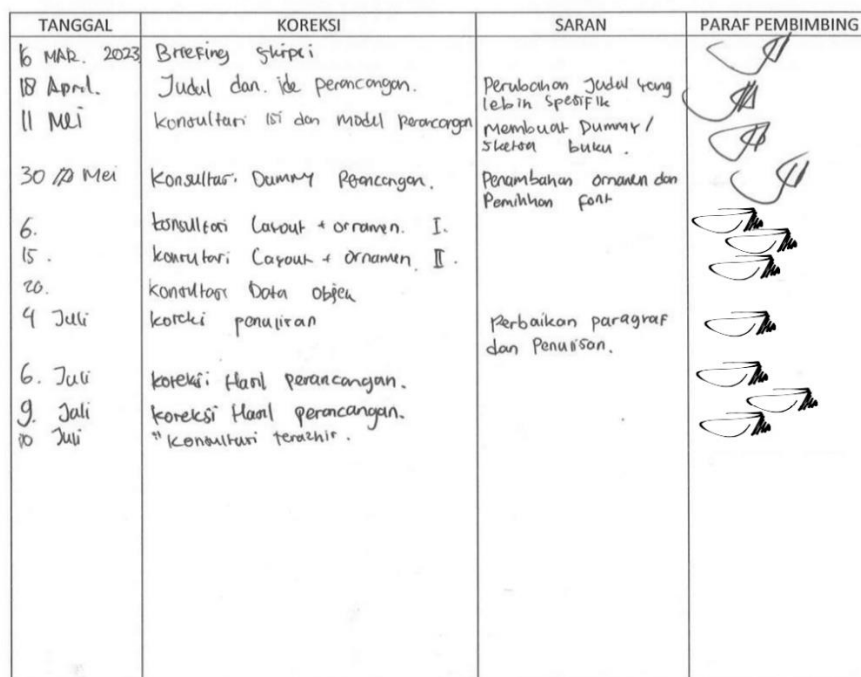 TANGGAL KOREKSI SARAN PARAF PEMBIMBING
16 MAR. 2023 Briefing skripsi
18 April. Judul dan ide perancangan. Perubahan Judul yang
lebih spesifik
11 Mei konsultasi isi dan model perancangan Membuat Dummy /
sketsa buku.
30 Mei Konsultasi Dummy Perancangan. Penambahan ornamen dan
Pemilihan font
6. konsultasi Layout + ornamen. I.
15. konsultasi Layout + ornamen. II.
20. konsultasi Data objek
4 Juli koreksi penulisan Perbaikan paragraf
dan Penulisan.
6. Juli koreksi Hasil perancangan.
9. Juli koreksi Hasil perancangan.
10 Juli "Konsultasi terakhir.